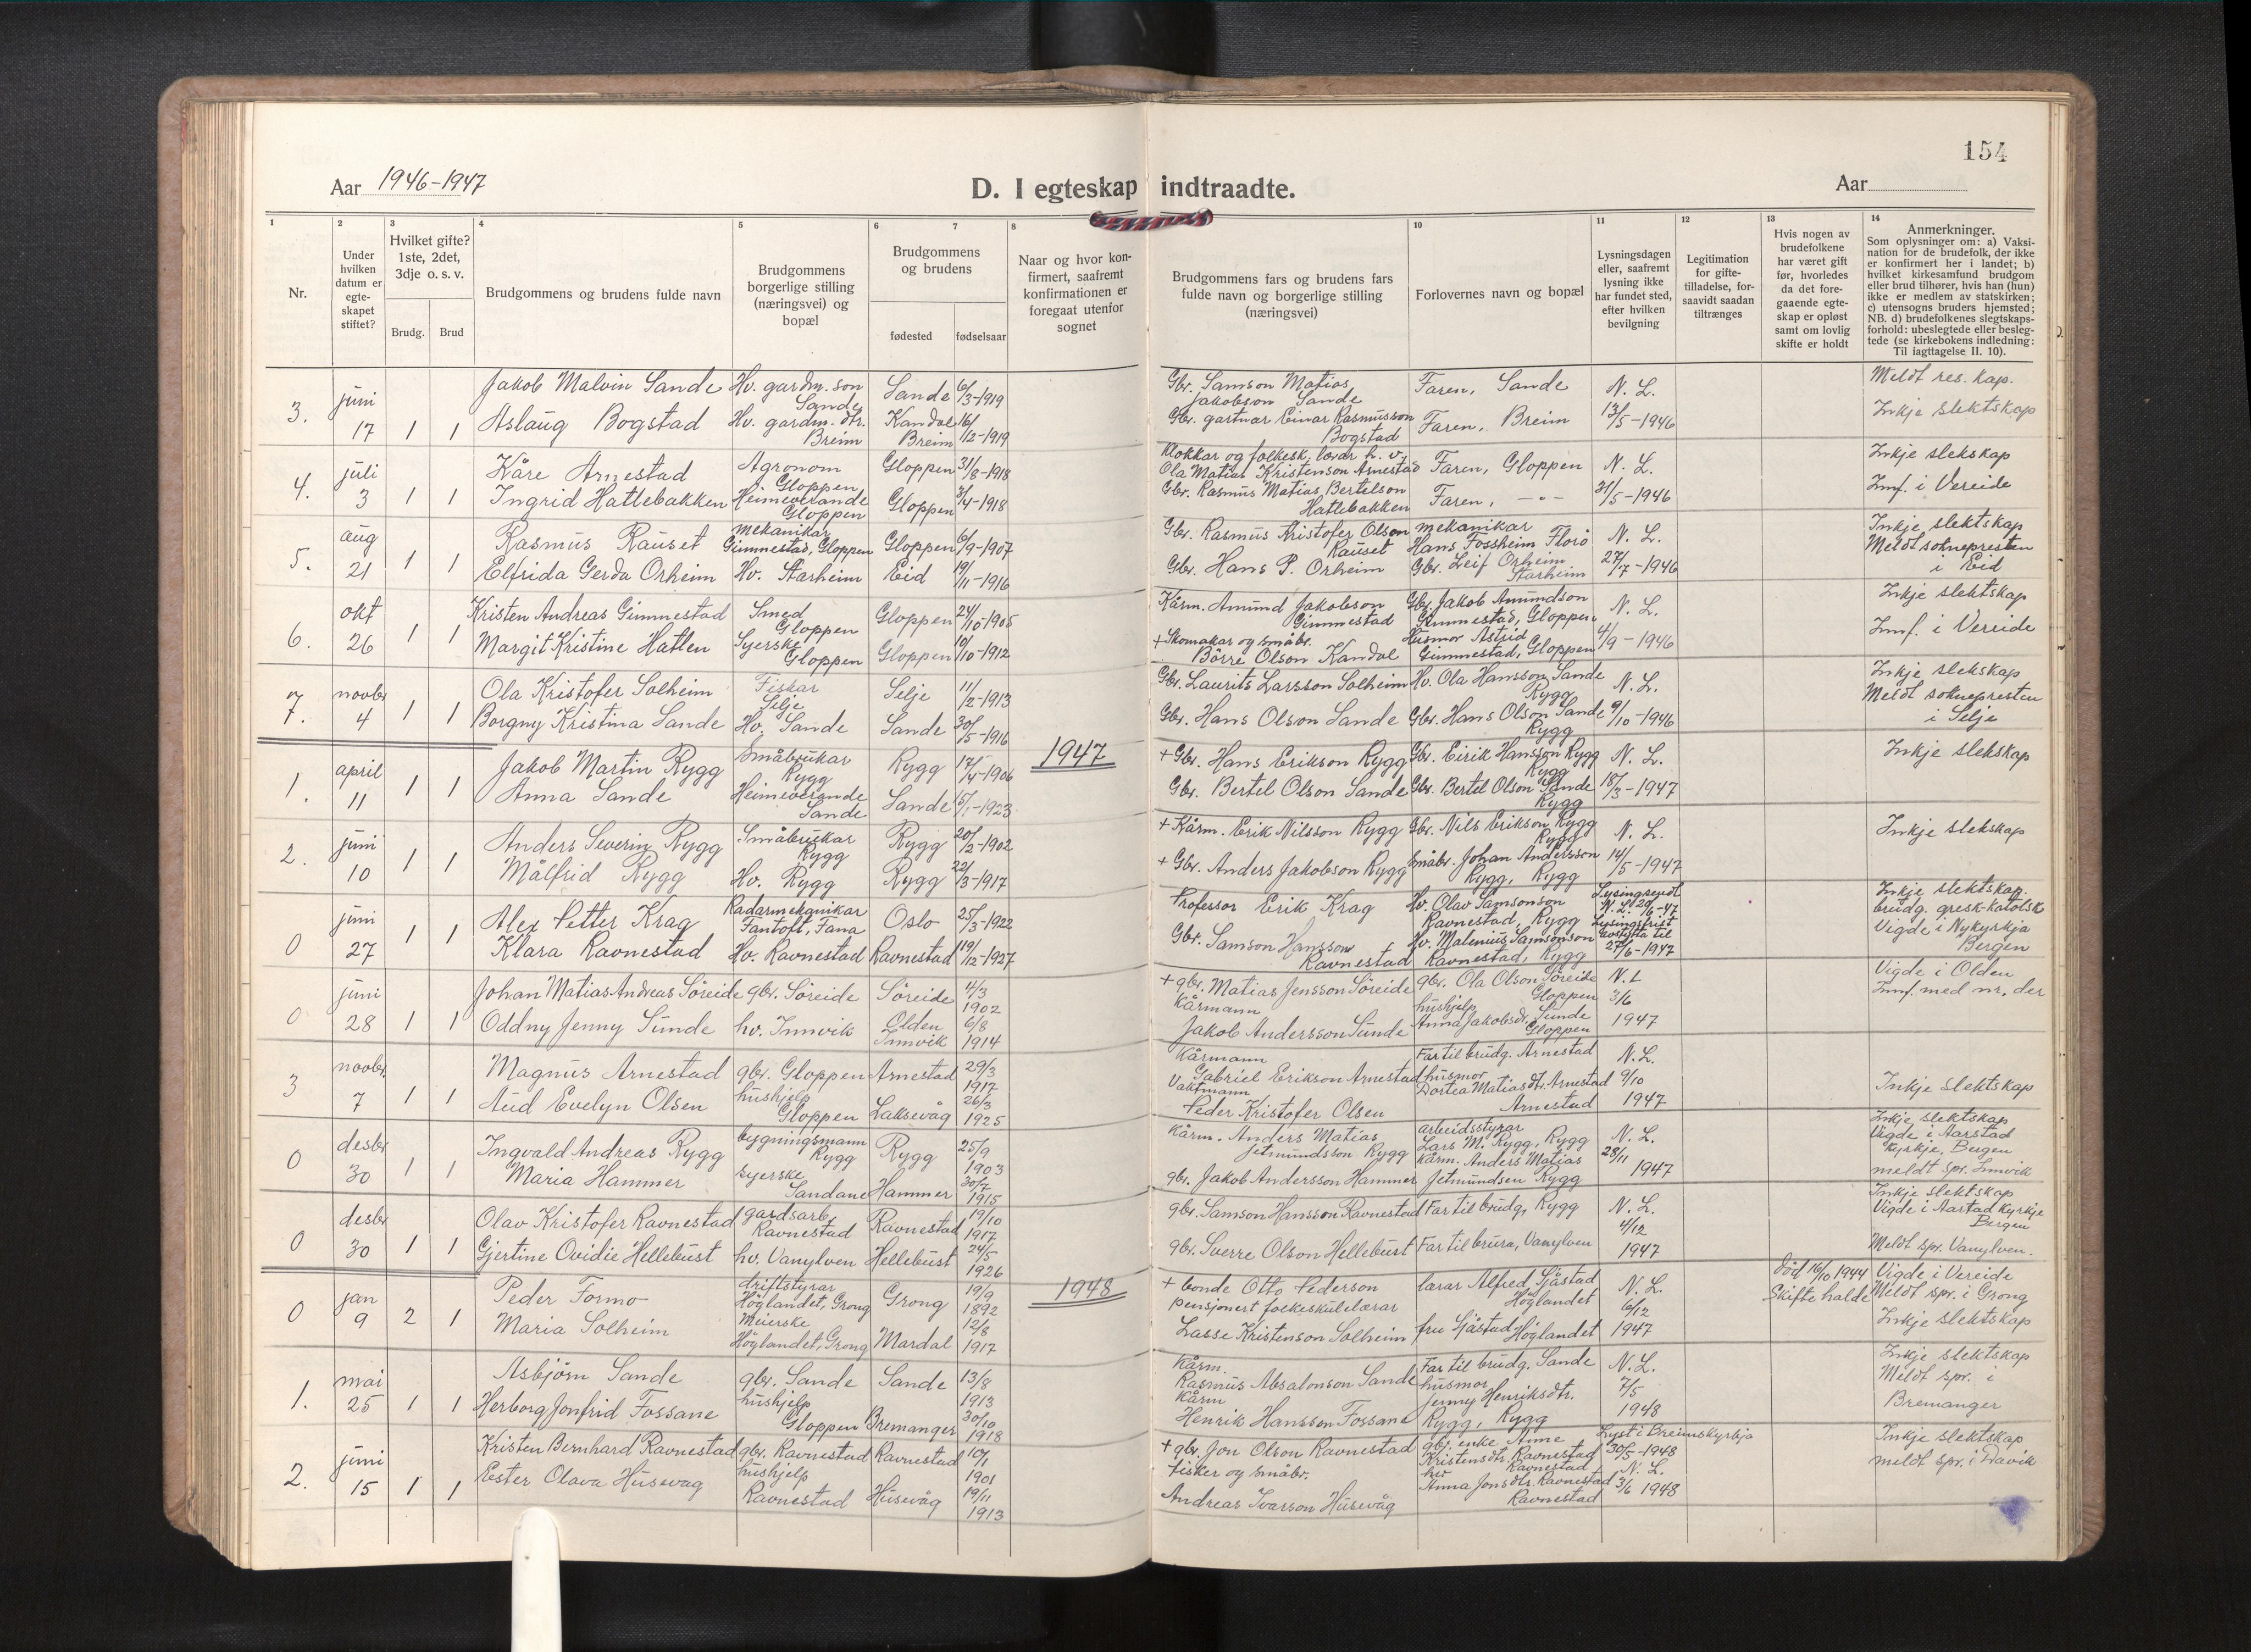 154
Aar 1946-1947
D. I egteskap indtraadte.
Aar
1
2
3
4
5
6
7
8
10
11
12
13
14
Nr.
Under hvilken datum er egte-skapet stiftet?
Hvilket gifte? 1ste, 2det, 3dje o. s. v.
Brudg.
Brud
Brudgommens og brudens fulde navn
Brudgommens borgerlige stilling (næringsvei) og bopæl
Brudgommens og brudens
fødested
fødselsaar
Naar og hvor kon-firmert, saafremt konfirmationen er foregaat utenfor sognet
Brudgommens fars og brudens fars fulde navn og borgerlige stilling (næringsvei)
Forlovernes navn og bopæl
Lysningsdagen eller, saafremt lysning ikke har fundet sted, efter hvilken bevilgning
Legitimation for gifte-tilladelse, for-saavidt saadan tiltrænges
Hvis nogen av brudefolkene har været gift før, hvorledes da det fore-gaaende egte-skap er opløst samt om lovlig skifte er holdt
Anmerkninger.
Som oplysninger om: a) Vaksi-nation for de brudefolk, der ikke er konfirmert her i landet; b) hvilket kirkesamfund brudgom eller brud tilhører, hvis han (hun) ikke er medlem av statskirken; c) utensogns bruders hjemsted; NB. d) brudefolkenes slegtskaps-forhold: ubeslegtede eller besleg-tede (se kirkebokens indledning: Til iagttagelse II. 10).
3. juni 17 1 1
Jakob Malvin Sande Hv. gardm. son Sande Sande 6/3-1919
Aslaug Bogstad Hv. gardm. dtr. Breim Kandal Breim 16/12-1919
Gbr. Samson Matias Jakobson Sande Faren, Sande N. L.
Gbr. gartnar Einar Rasmusson Bogstad Faren, Breim 13/5-1946
Meldt res. kap.
Inkje slektskap
4. juli 3 1 1
Kåre Arnestad Agronom Gloppen Gloppen 31/8-1918
Ingrid Hatlebakken Heimeverande Gloppen Gloppen 3/4-1918
Klokkar og folkesk. lærar h. v. Ola Matias Kristenson Arnestad Faren, Gloppen N. L.
Gbr. Rasmus Matias Bertelson Hatlebakken Faren, -"- 31/5-1946
Inkje slekskap
Innf. i Vereide
5. aug 21 1 1
Rasmus Rauset mekanikar Gimmestad, Gloppen Gloppen 6/9-1907
Elfrida Gerda Orheim Hv. Starheim Eid 19/11-1916
Gbr. Rasmus Kristofer Olson Rauset mekanikar Hans Fossheim Florø N. L.
Gbr. Hans P. Orheim Gbr. Leif Orheim Starheim 27/7-1946
Inkje slektskap
Meldt soknepresten i Eid
6. okt 26 1 1
Kristen Andreas Gimmestad Smed Gloppen Gloppen 24/10-1905
Margit Kristine Hatlen Syerske Gloppen Gloppen 10/10-1912
Kårm. Amund Jakobson Gimmestad Gbr. Jakob Amundson Gimmestad, Gloppen N. L.
+ Skomakar og småbr. Börre Olson Kandal Husmor Astrid Gimmestad, Gloppen 4/9-1946
Inkje slektskap
Innf. i Vereide
7. novbr 4 1 1
Ola Kristofer Solheim Fiskar Selje Selje 11/2-1913
Borgny Kristina Sande Hv. Sande Sande 30/5-1916
Gbr. Laurits Larsson Solheim Hv. Ola Hansson Sande Rygg N. L.
Gbr. Hans Olson Sande Gbr. Hans Olson Sande Rygg 9/10-1946
Inkje slekskap
Meldt soknepresten i Selje
1947
1. april 11 1 1
Jakob Martin Rygg Småbrukar Rygg Rygg 17/4-1906
Anna Sande Heimeverande Sande Sande 15/1-1923
+ Gbr. Hans Erikson Rygg Gbr. Eirik Hansson Rygg Rygg N. L.
Gbr. Bertel Olson Sande Gbr. Bertel Olson Sande Rygg 18/3-1947
Inkje slekskap
2. juni 10 1 1
Anders Severin Rygg Småbrukar Rygg Rygg 20/2-1902
Målfrid Rygg Hv. Rygg Rygg 22/3-1917
+ Kårm. Erik Nilsson Rygg Gbr. Nils Erikson Rygg Rygg N. L.
+ Gbr. Anders Jakobson Rygg Småbr. Johan Andersson Rygg, Rygg 14/5-1947
Inkje slekskap
0 juni 27 1 1
Alex Petter Krag Radarmekanikar Fantoft, Fana Oslo 25/3-1922
Klara Ravnestad Hv. Ravnestad Ravnestad 19/12-1927
Professor Erik Krag Hv. Olav Samsonson Ravnestad, Rygg
Gbr. Samson Hansson Ravnestad Hv. Matenius Samsonson Ravnestad, Rygg 27/6-1947
Inkje slektskap.
brudg. gresk-katolsk
Vigde i Nykyrkja Bergen
0 juni 28 1 1
Johan Matias Andreas Söreide gbr. Söreide Söreide 4/3 1902
Oddny Jenny Sunde hv. Innvik Olden Innvik 6/8 1914
+ gbr. Matias Jensson Söreide gbr. Ola Olson Söreide Gloppen N. L 3/6 1947
Kårmann Jakob Andersson Sunde hushjelp Anna Jakobsdr. Sunde Gloppen
Vigde i Olden
Innf. med nr. der
3 novbr. 7 1 1
Magnus Arnestad gbr. Gloppen Arnestad 29/3 1917
Aud Evelyn Olsen hushjelp Gloppen Laksevåg 26/3 1925
Kårmann Gabriel Erikson Arnestad Far til brudg. Arnestad N. L.
Vaktmann Peder Kristofer Olsen husmor Dortea Matiasdtr. Arnestad Arnestad 9/10 1947
Inkje slektskap
0 desbr 30 1 1
Ingvald Andreas Rygg bygningsmann Rygg Rygg 25/9 1903
Maria Hammer syerske Sandane Hammer 30/7 1915
Kårm. Anders Matias Jetmundsson Rygg arbeidsstyrar Lars M. Rygg, Rygg N. L.
gbr. Jakob Andersson Hammer Kårm. Anders Matias Jetmundsen Rygg 28/11 1947
Inkje slektskap
Vigde i Aarstad kyrkje, Bergen
meldt spr. Innvik
0 desbr 30 1 1
Olav Kristofer Ravnestad gardsarb. Ravnestad Ravnestad 19/10 1917
Gjertine Ovidie Hellebust hv. Vanylven Hellebust 24/5 1926
gbr. Samson Hansson Ravnestad Far til brudg, Rygg N. L.
gbr. Sverre Olson Hellebust Far til brura, Vanylven 4/12 1947
Inkje slektskap
Vigde i Aarstad kyrkje Bergen
Meldt spr. Vanylven.
1948
0 jan 9 2 1
Peder Formo driftstyrar Höylandet, Grong Grong 19/9 1892
Maria Solheim Meierske Höylandet, Grong Mardal 12/8 1917
+ bonde Otto Pederson lærar Alfred Sjåstad Höylandet N. L.
pensjonert folkeskulelærar Lasse Kristenson Solheim fru Sjåstad Höylandet 6/12 1947
Död 16/10 1944
Skifte halde
Vigde i Vereide
Meldt spr. i Grong
Inkje slektskap
1. mai 25 1 1
Asbjörn Sande gbr. Sande Sande 13/8 1913
Herborg Jonfrid Fossane hushjelp Gloppen Bremanger 30/10 1918
Kårm. Rasmus Absalonson Sande Far til brudg. Sande N. L.
Kårm Henrik Hansson Fossane husmor Jenny Henriksdtr. Rygg, Rygg 7/5 1948
Inkje slektskap
Meldt spr. i Bremanger
2. juni 15 1 1
Kristen Bernhard Ravnestad gbr. Ravnestad Ravnestad 10/1 1901
Ester Olava Husevåg hushjelp Ravnestad Husevåg 19/11 1913
+ gbr. Jon Olson Ravnestad gbr. enke Anne Kristensdtr. Ravnestad Ravnestad Lyst i Breimskyrkja 30/5-1948
fisker og småbr. Andreas Ivarson Husevåg hv Anna Jonsdtr. Ravnestad Ravnestad N. L. 3/6 1948
Inkje slektskap
meldt spr. i Davik